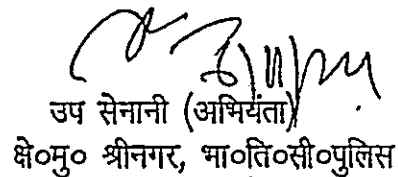 उप सेनानी (अभियंता)
क्षे०मु० श्रीनगर, भा०ति०सी०पुलिस